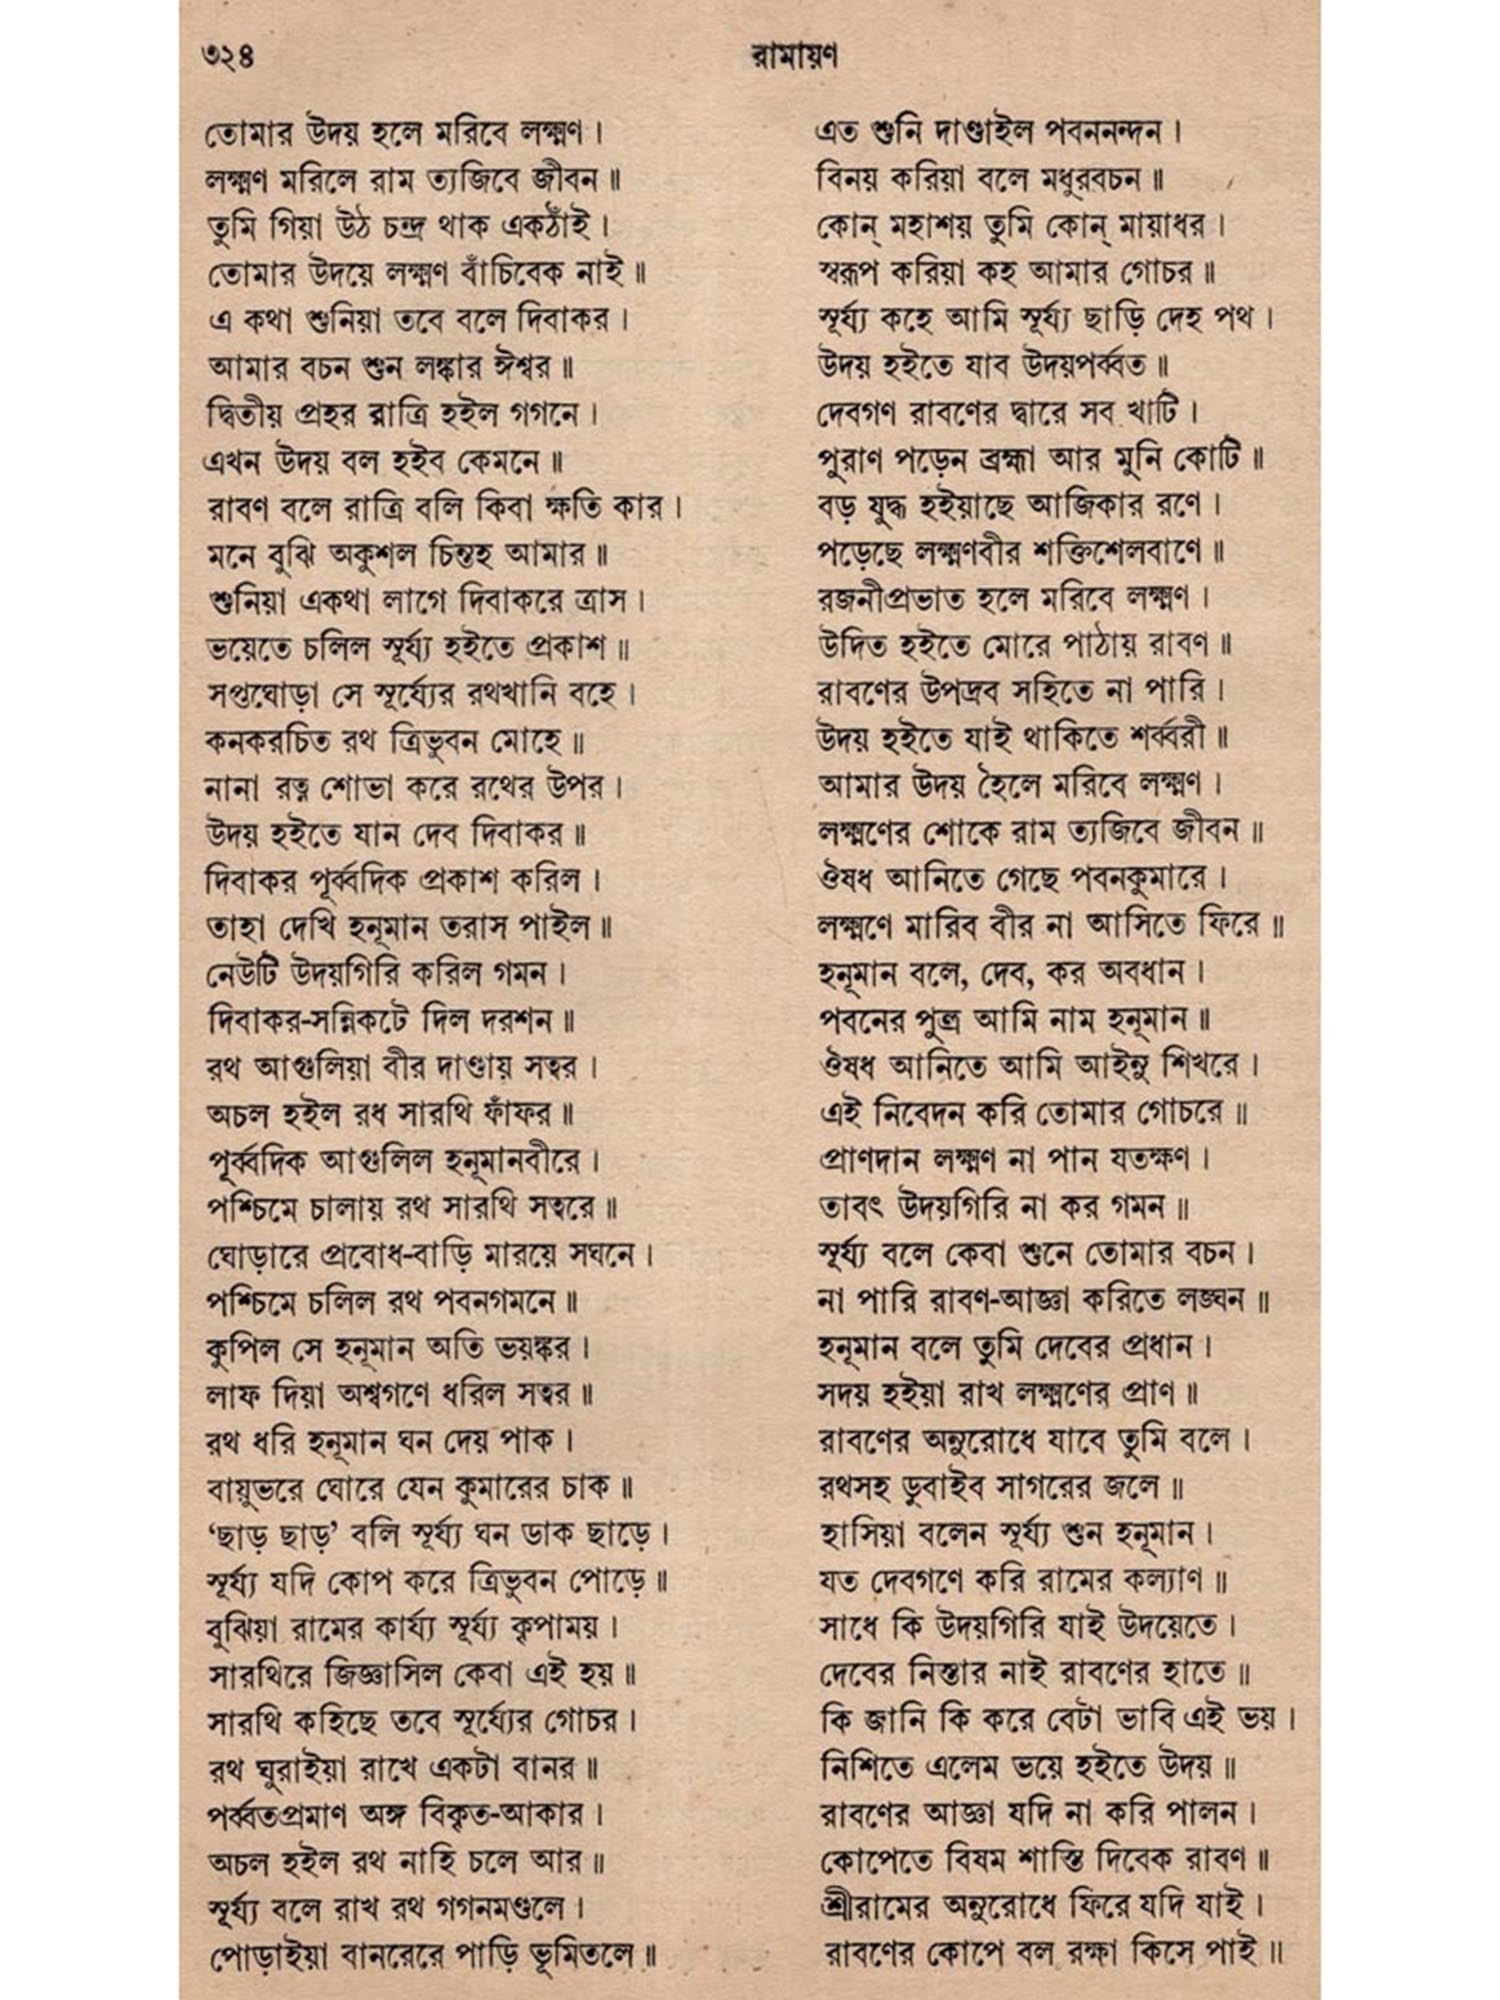 ৩২৪
রামায়ণ
তোমার উদয় হলে মরিবে লক্ষ্মণ।
লক্ষ্মণ মরিলে রাম ত্যজিবে জীবন॥
তুমি গিয়া উঠ চন্দ্র থাক একঠাঁই।
তোমার উদয়ে লক্ষ্মণ বাঁচিবেক নাই॥
এ কথা শুনিয়া তবে বলে দিবাকর।
আমার বচন শুন লঙ্কার ঈশ্বর॥
দ্বিতীয় প্রহর রাত্রি হইল গগনে।
এখন উদয় বল হইব কেমনে॥
রাবণ বলে রাত্রি বলি কিবা ক্ষতি কার।
মনে বুঝি অকুশল চিন্তহ আমার॥
শুনিয়া একথা লাগে দিবাকরে ত্রাস।
ভয়েতে চলিল সূর্য্য হইতে প্রকাশ॥
সপ্তঘোড়া সে সূর্য্যের রথখানি বহে।
কনকরচিত রথ ত্রিভুবন মোহে॥
নানা রত্ন শোভা করে রথের উপর।
উদয় হইতে যান দেব দিবাকর॥
দিবাকর পূর্ব্বদিক প্রকাশ করিল।
তাহা দেখি হনূমান তরাস পাইল॥
নেউটি উদয়গিরি করিল গমন।
দিবাকর-সন্নিকটে দিল দরশন॥
রথ আগুলিয়া বীর দাণ্ডায় সত্বর।
অচল হইল রধ সারথি ফাঁফর॥
পূর্ব্বদিক আগুলিল হনূমানবীরে।
পশ্চিমে চালায় রথ সারথি সত্বরে॥
ঘোড়ারে প্রবোধ-বাড়ি মারয়ে সঘনে।
পশ্চিমে চলিল রথ পবনগমনে॥
কুপিল সে হনূমান অতি ভয়ঙ্কর।
লাফ দিয়া অশ্বগণে ধরিল সত্বর॥
রথ ধরি হনূমান ঘন দেয় পাক।
বায়ুভরে ঘোরে যেন কুমারের চাক॥
‘ছাড় ছাড়’ বলি সূর্য্য ঘন ডাক ছাড়ে।
সূর্য্য যদি কোপ করে ত্রিভুবন পোড়ে॥
বুঝিয়া রামের কার্য্য সূর্য্য কৃপাময়।
সারথিরে জিজ্ঞাসিল কেবা এই হয়॥
সারথি কহিছে তবে সূর্য্যের গোচর।
রথ ঘুরাইয়া রাখে একটা বানর॥
পর্ব্বতপ্রমাণ অঙ্গ বিকৃত-আকার।
অচল হইল রথ নাহি চলে আর॥
সূর্য্য বলে রাখ রথ গগনমণ্ডলে।
পোড়াইয়া বানরেরে পাড়ি ভূমিতলে॥
এত শুনি দাণ্ডাইল পবননন্দন।
বিনয় করিয়া বলে মধুরবচন॥
কোন্ মহাশয় তুমি কোন্ মায়াধর।
স্বরূপ করিয়া কহ আমার গোচর॥
সূর্য্য কহে আমি সূর্য্য ছাড়ি দেহ পথ।
উদয় হইতে যাব উদয়পর্ব্বত॥
দেবগণ রাবণের দ্বারে সব খাটি।
পুরাণ পড়েন ব্রহ্মা আর মুনি কোটি॥
বড় যুদ্ধ হইয়াছে আজিকার রণে।
পড়েছে লক্ষ্মণবীর শক্তিশেলবাণে॥
রজনীপ্রভাত হলে মরিবে লক্ষ্মণ।
উদিত হইতে মোরে পাঠায় রাবণ॥
রাবণের উপদ্রব সহিতে না পারি।
উদয় হইতে যাই থাকিতে শর্ব্বরী॥
আমার উদয় হৈলে মরিবে লক্ষ্মণ।
লক্ষ্মণের শোকে রাম ত্যজিবে জীবন॥
ঔষধ আনিতে গেছে পবনকুমারে।
লক্ষ্মণে মারিব বীর না আসিতে ফিরে॥
হনূমান বলে, দেব, কর অবধান।
পবনের পুত্র আমি নাম হনূমান॥
ঔষধ আনিতে আমি আইনু শিখরে।
এই নিবেদন করি তোমার গোচরে॥
প্রাণদান লক্ষ্মণ না পান যতক্ষণ।
তাবৎ উদয়গিরি না কর গমন॥
সূর্য্য বলে কেবা শুনে তোমার বচন।
না পারি রাবণ-আজ্ঞা করিতে লঙ্ঘন॥
হনূমান বলে তুমি দেবের প্রধান।
সদয় হইয়া রাখ লক্ষ্মণের প্রাণ॥
রাবণের অনুরোধে যাবে তুমি বলে।
রথসহ ডুবাইব সাগরের জলে॥
হাসিয়া বলেন সূর্য্য শুন হনূমান।
যত দেবগণে করি রামের কল্যাণ॥
সাধে কি উদয়গিরি যাই উদয়েতে।
দেবের নিস্তার নাই রাবণের হাতে॥
কি জানি কি করে বেটা ভাবি এই ভয়।
নিশিতে এলেম ভয়ে হইতে উদয়॥
রাবণের আজ্ঞা যদি না করি পালন।
কোপেতে বিষম শাস্তি দিবেক রাবণ॥
শ্রীরামের অনুরোধে ফিরে যদি যাই।
রাবণের কোপে বল রক্ষা কিসে পাই॥